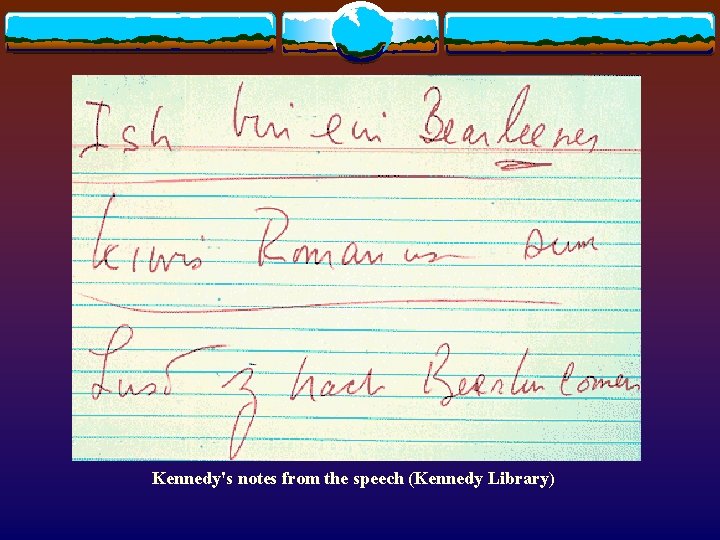 Ish bin ein Bearleener
kiwis Romanus sum
Lusd z nach Bearlin comen
Kennedy's notes from the speech (Kennedy Library)